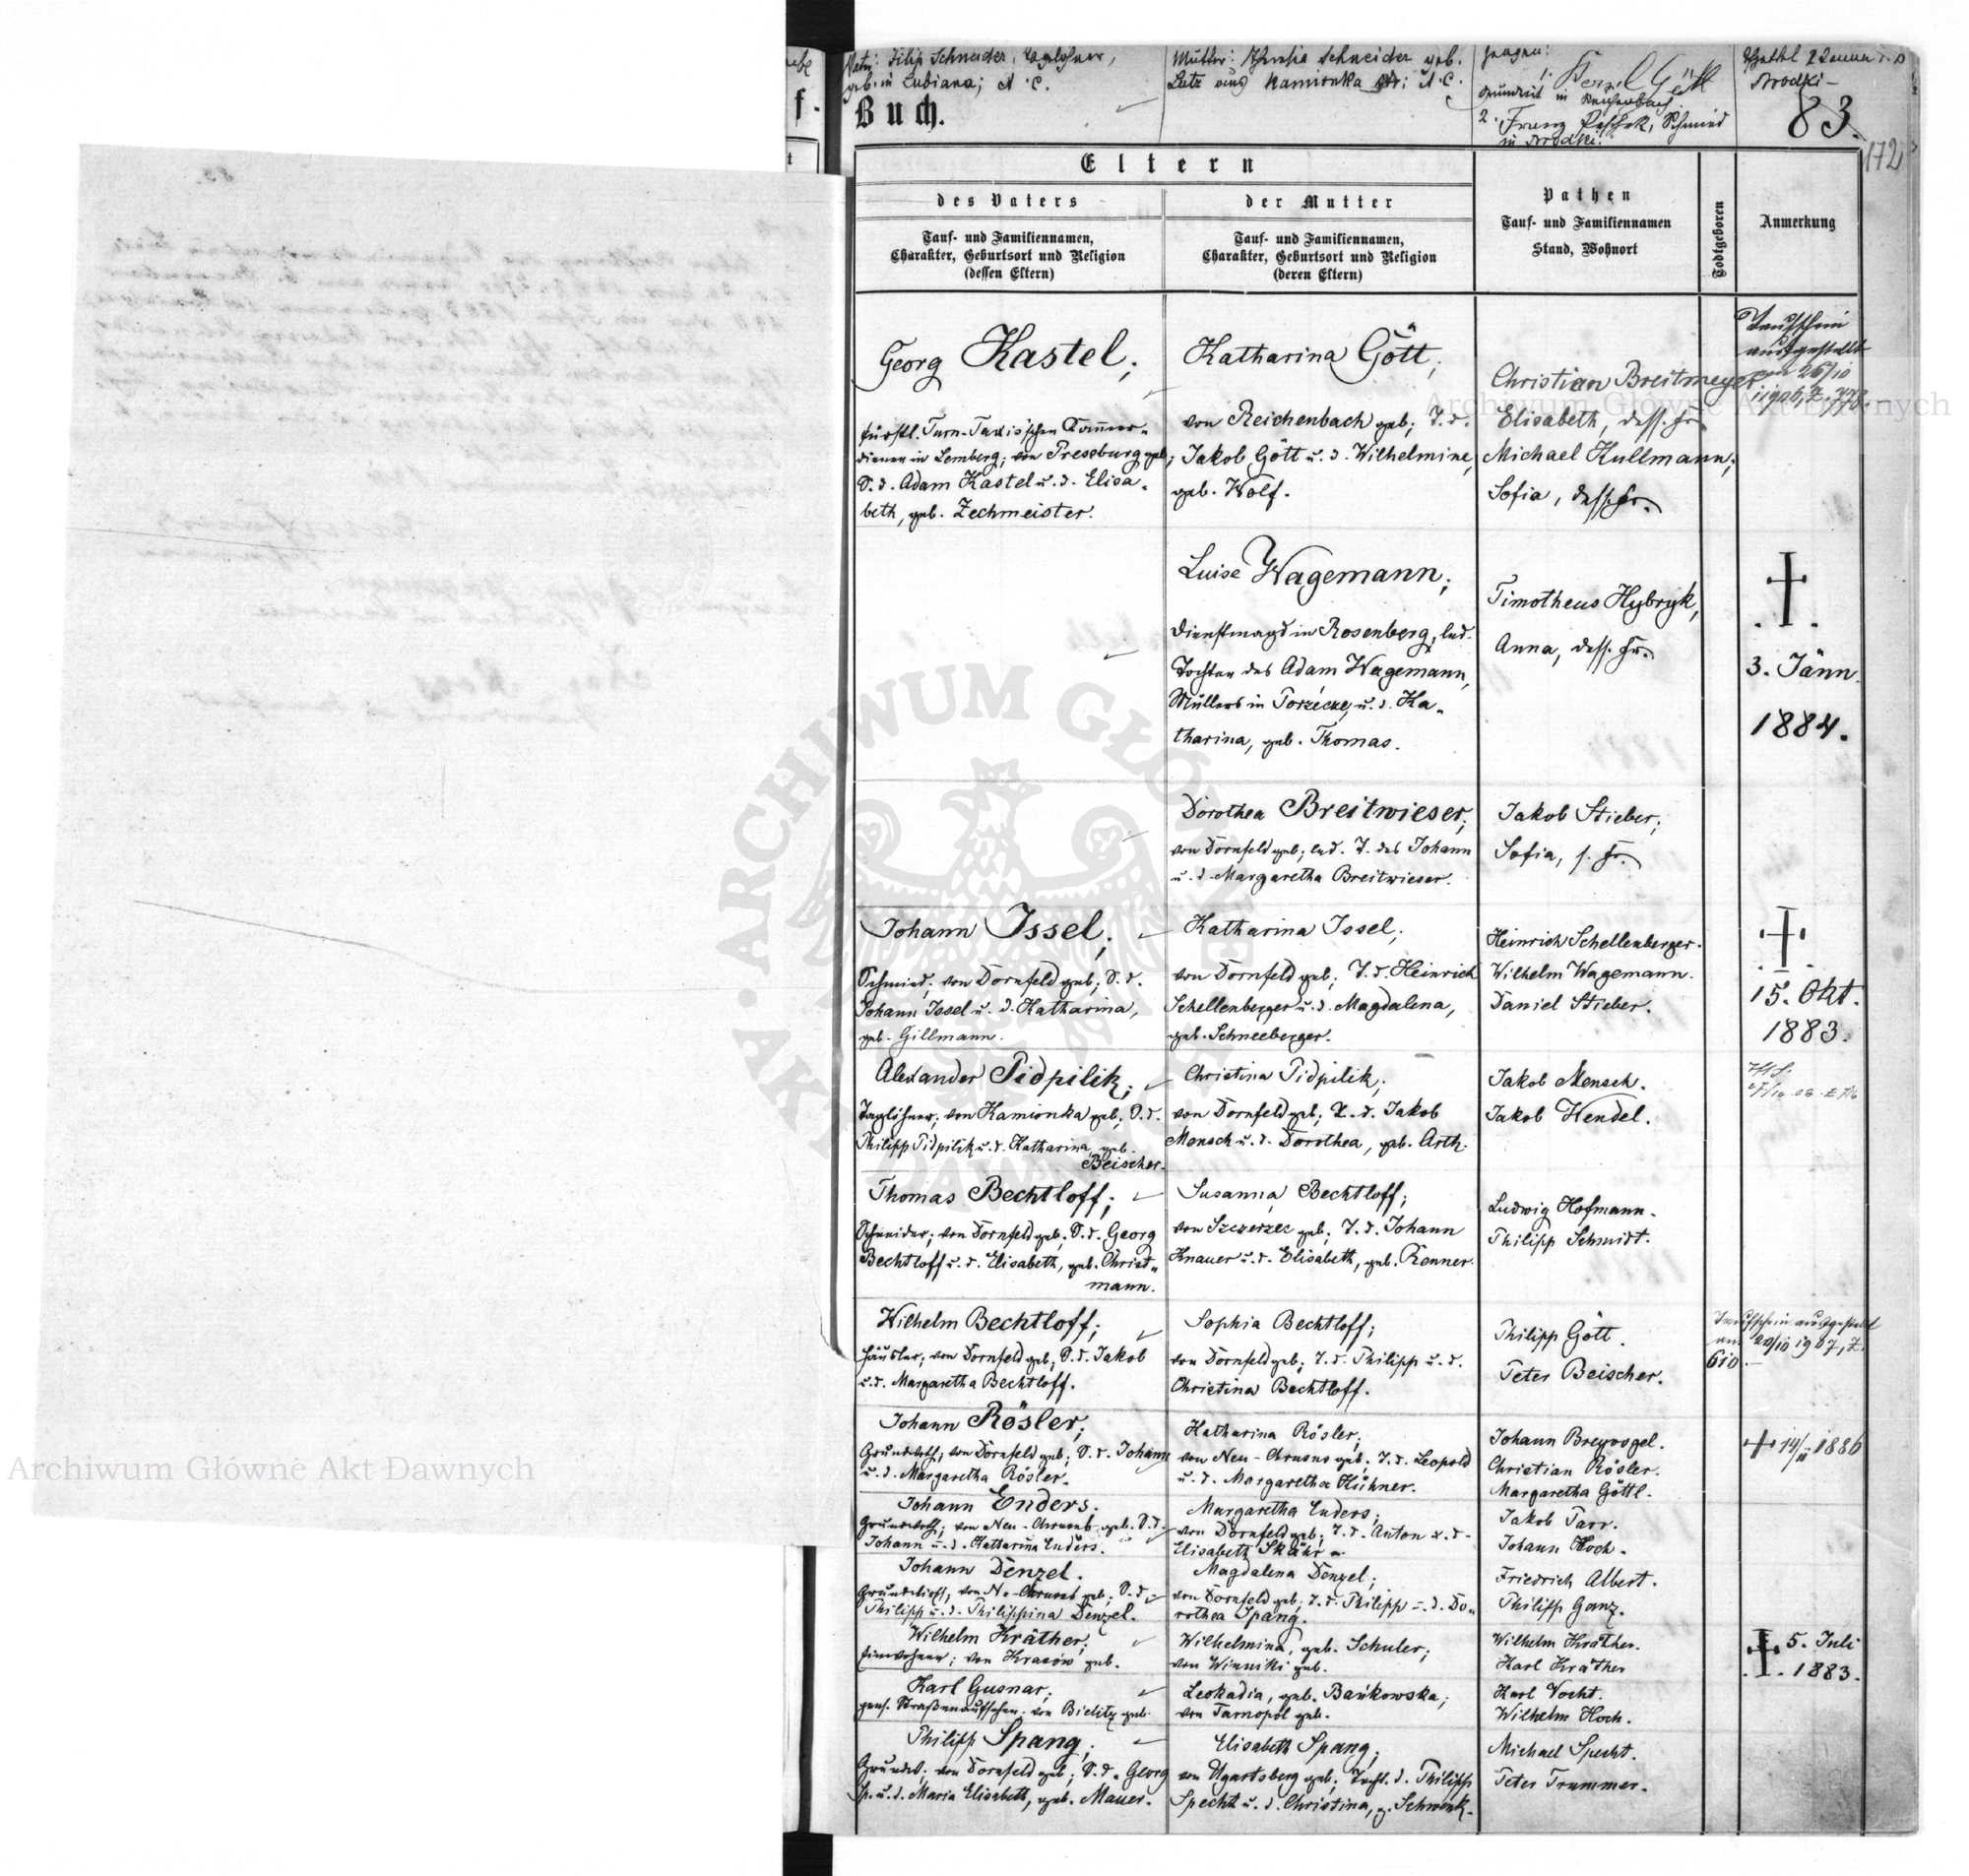 Vater: Filip Schneider, Taglöhner,
geb. in Lubiana; A. C.
Mutter: Theresia Schneider geb.
Lutz aus Kamionka A. C.
Zeugen:
1.
Grundwirt in Reichenbach
2. Franz Peschek, Schmied
in Brodki.
Brodki
Buch.
83.
172
Eltern
des Vaters
der Mutter
Tauf- und Familiennamen,
Charakter, Geburtsort und Religion
(dessen Eltern)
Tauf- und Familiennamen,
Charakter, Geburtsort und Religion
(deren Eltern)
Pathen
Tauf- und Familiennamen
Stand, Wohnort
Todtgeboren
Anmerkung
Georg Kastel;
fürstl. Turn-Taxis'schen Kammer-
diener in Lemberg; von Pressburg geb;
S. d. Adam Kastel u. d. Elisa-
beth, geb. Zechmeister.
Katharina Gött;
von Reichenbach geb; T. d.
Jakob Gött u. d. Wilhelmine,
geb. Wolf.
Christian Breitmeyer
Elisabeth, dess. Fr.
Michael Kullmann;
Sofia, dess. Fr.
Taufschein
ausgestellt
am 26/10
Luise Wagemann;
Dienstmagd in Rosenberg, led.
Tochter des Adam Wagemann,
Müllers in u. d. Ka-
tharina, geb. Thomas.
Timotheus Hybryk,
Anna, dess. Fr.
3. Jänn.
1884.
Dorothea Breitwieser;
von Dornfeld geb; led. T. des Johann
u. d. Margaretha Breitwieser.
Jakob Stieber;
Sofia, s. Fr.
Johann Issel;
Schmied; von Dornfeld geb; S. d.
Johann Issel u. d. Katharina,
geb. Gillmann.
Katharina Issel;
von Dornfeld geb; T. d. Heinrich
Schellenberger u. d. Magdalena,
geb. Schneeberger.
Heinrich Schellenberger.
Wilhelm Wagemann.
Daniel Stieber.
15. Okt.
1883.
Alexander Pidpilik;
Taglöhner; von Kamionka geb; S. d.
Philipp Pidpilik u. d. Katharina, geb.
Beischer.
Christina Pidpilik;
von Dornfeld geb; T. d. Jakob
Mensch u. d. Dorothea, geb. Arth.
Jakob Mensch.
Jakob Hendel.
Thomas Bechtloff;
Schneider; von Dornfeld geb; S. d. Georg
Bechtloff u. d. Elisabeth, geb. Christ-
mann.
Susanna Bechtloff;
von Szczerzec geb; T. d. Johann
Knauer u. d. Elisabeth, geb. Renner.
Ludwig Hofmann.
Philipp Schmidt.
Wilhelm Bechtloff;
Häusler; von Dornfeld geb; S. d. Jakob
u. d. Margaretha Bechtloff.
Sophia Bechtloff;
von Dornfeld geb; T. d. Philipp u. d.
Christina Bechtloff.
Philipp Gött.
Peter Beischer.
Taufschein ausgestellt
am 20/10 1907, Z.
610.
Johann Rösler;
Grundwirth; von Dornfeld geb; S. d. Johann
u. d. Margaretha Rösler.
Katharina Rösler;
von Neu-Chrusno geb. T. d. Leopold
u. d. Margaretha Kühner.
Johann Breyvogel.
Christian Rösler.
Margaretha Göttl.
14/II 1886
Johann Enders.
Grundwirth; von Neu-Chrusno geb. S. d.
Johann u. d. Katharina Enders.
Margaretha Enders;
von Dornfeld geb; T. d. Anton u. d.
Elisabeth
Jakob Parr.
Johann Koch.
Johann Denzel.
Grundwirth, von N.-Chrusno geb; S. d.
Philipp u. d. Philippina Denzel.
Magdalena Denzel;
von Dornfeld geb; T. d. Philipp u. d. Do-
rothea Spang.
Friedrich Albert.
Philipp Ganz.
Wilhelm Kräther;
Einwohner; von Krasów geb.
Wilhelmina, geb. Schuler;
von Winniki geb.
Wilhelm Kräther.
Karl Kräther
5. Juli
1883.
Karl Gusnar;
pens. Straßenaufseher. von Bielitz geb.
Leokadia, geb. Bańkowska;
von Tarnopol geb.
Karl Vocht.
Wilhelm Hoch.
Philipp Spang;
Grundw; von Dornfeld geb; S. d. Georg
Sp. u. d. Maria Elisabeth, geb. Mauer.
Elisabeth Spang;
von Ugartsberg geb; Tocht. d. Philipp
Specht u. d. Christina, g. Schwenk.
Michael Specht.
Peter Trummer.
Archiwum Główne Akt Dawnych
Archiwum Główne Akt Dawnych
ARCHIWUM GŁÓWNE AKT DAWNYCH